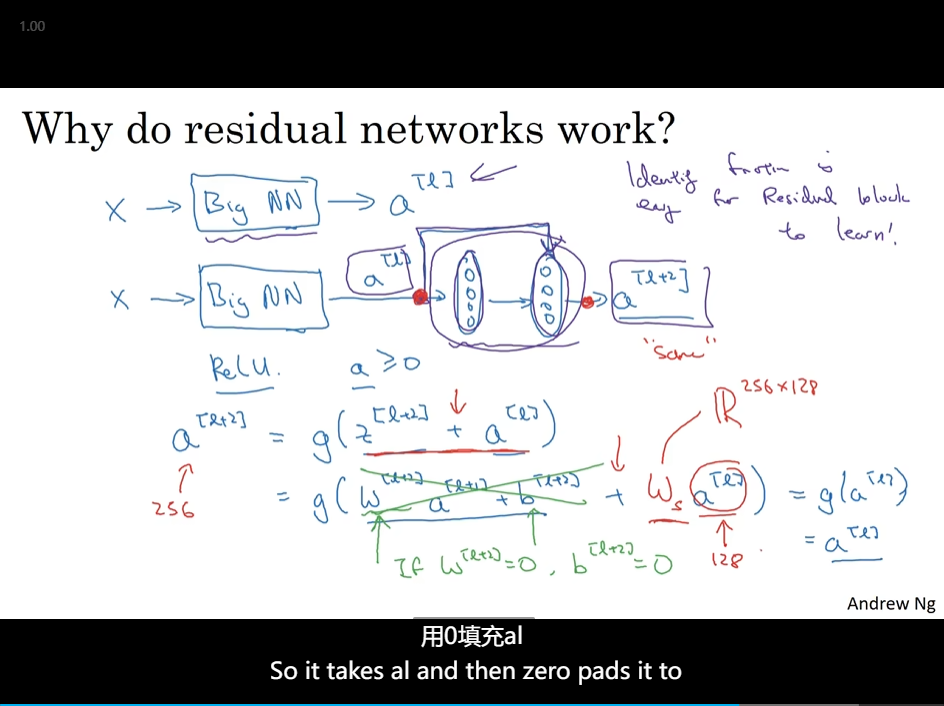 1.00
Why do residual networks work?
X → Big NN → a^[l]
Identity function is
easy for Residual block
to learn!
X → Big NN → a^[l] → a^[l+2]
"same"
ReLU. a ≥ 0
ℝ^256×128
a^[l+2] = g(z^[l+2] + a^[l])
256
= g(W^[l+2] a^[l+1] + b^[l+2] + W_s a^[l]) = g(a^[l])
= a^[l]
If W^[l+2] = 0, b^[l+2] = 0
128
Andrew Ng
用0填充al
So it takes al and then zero pads it to